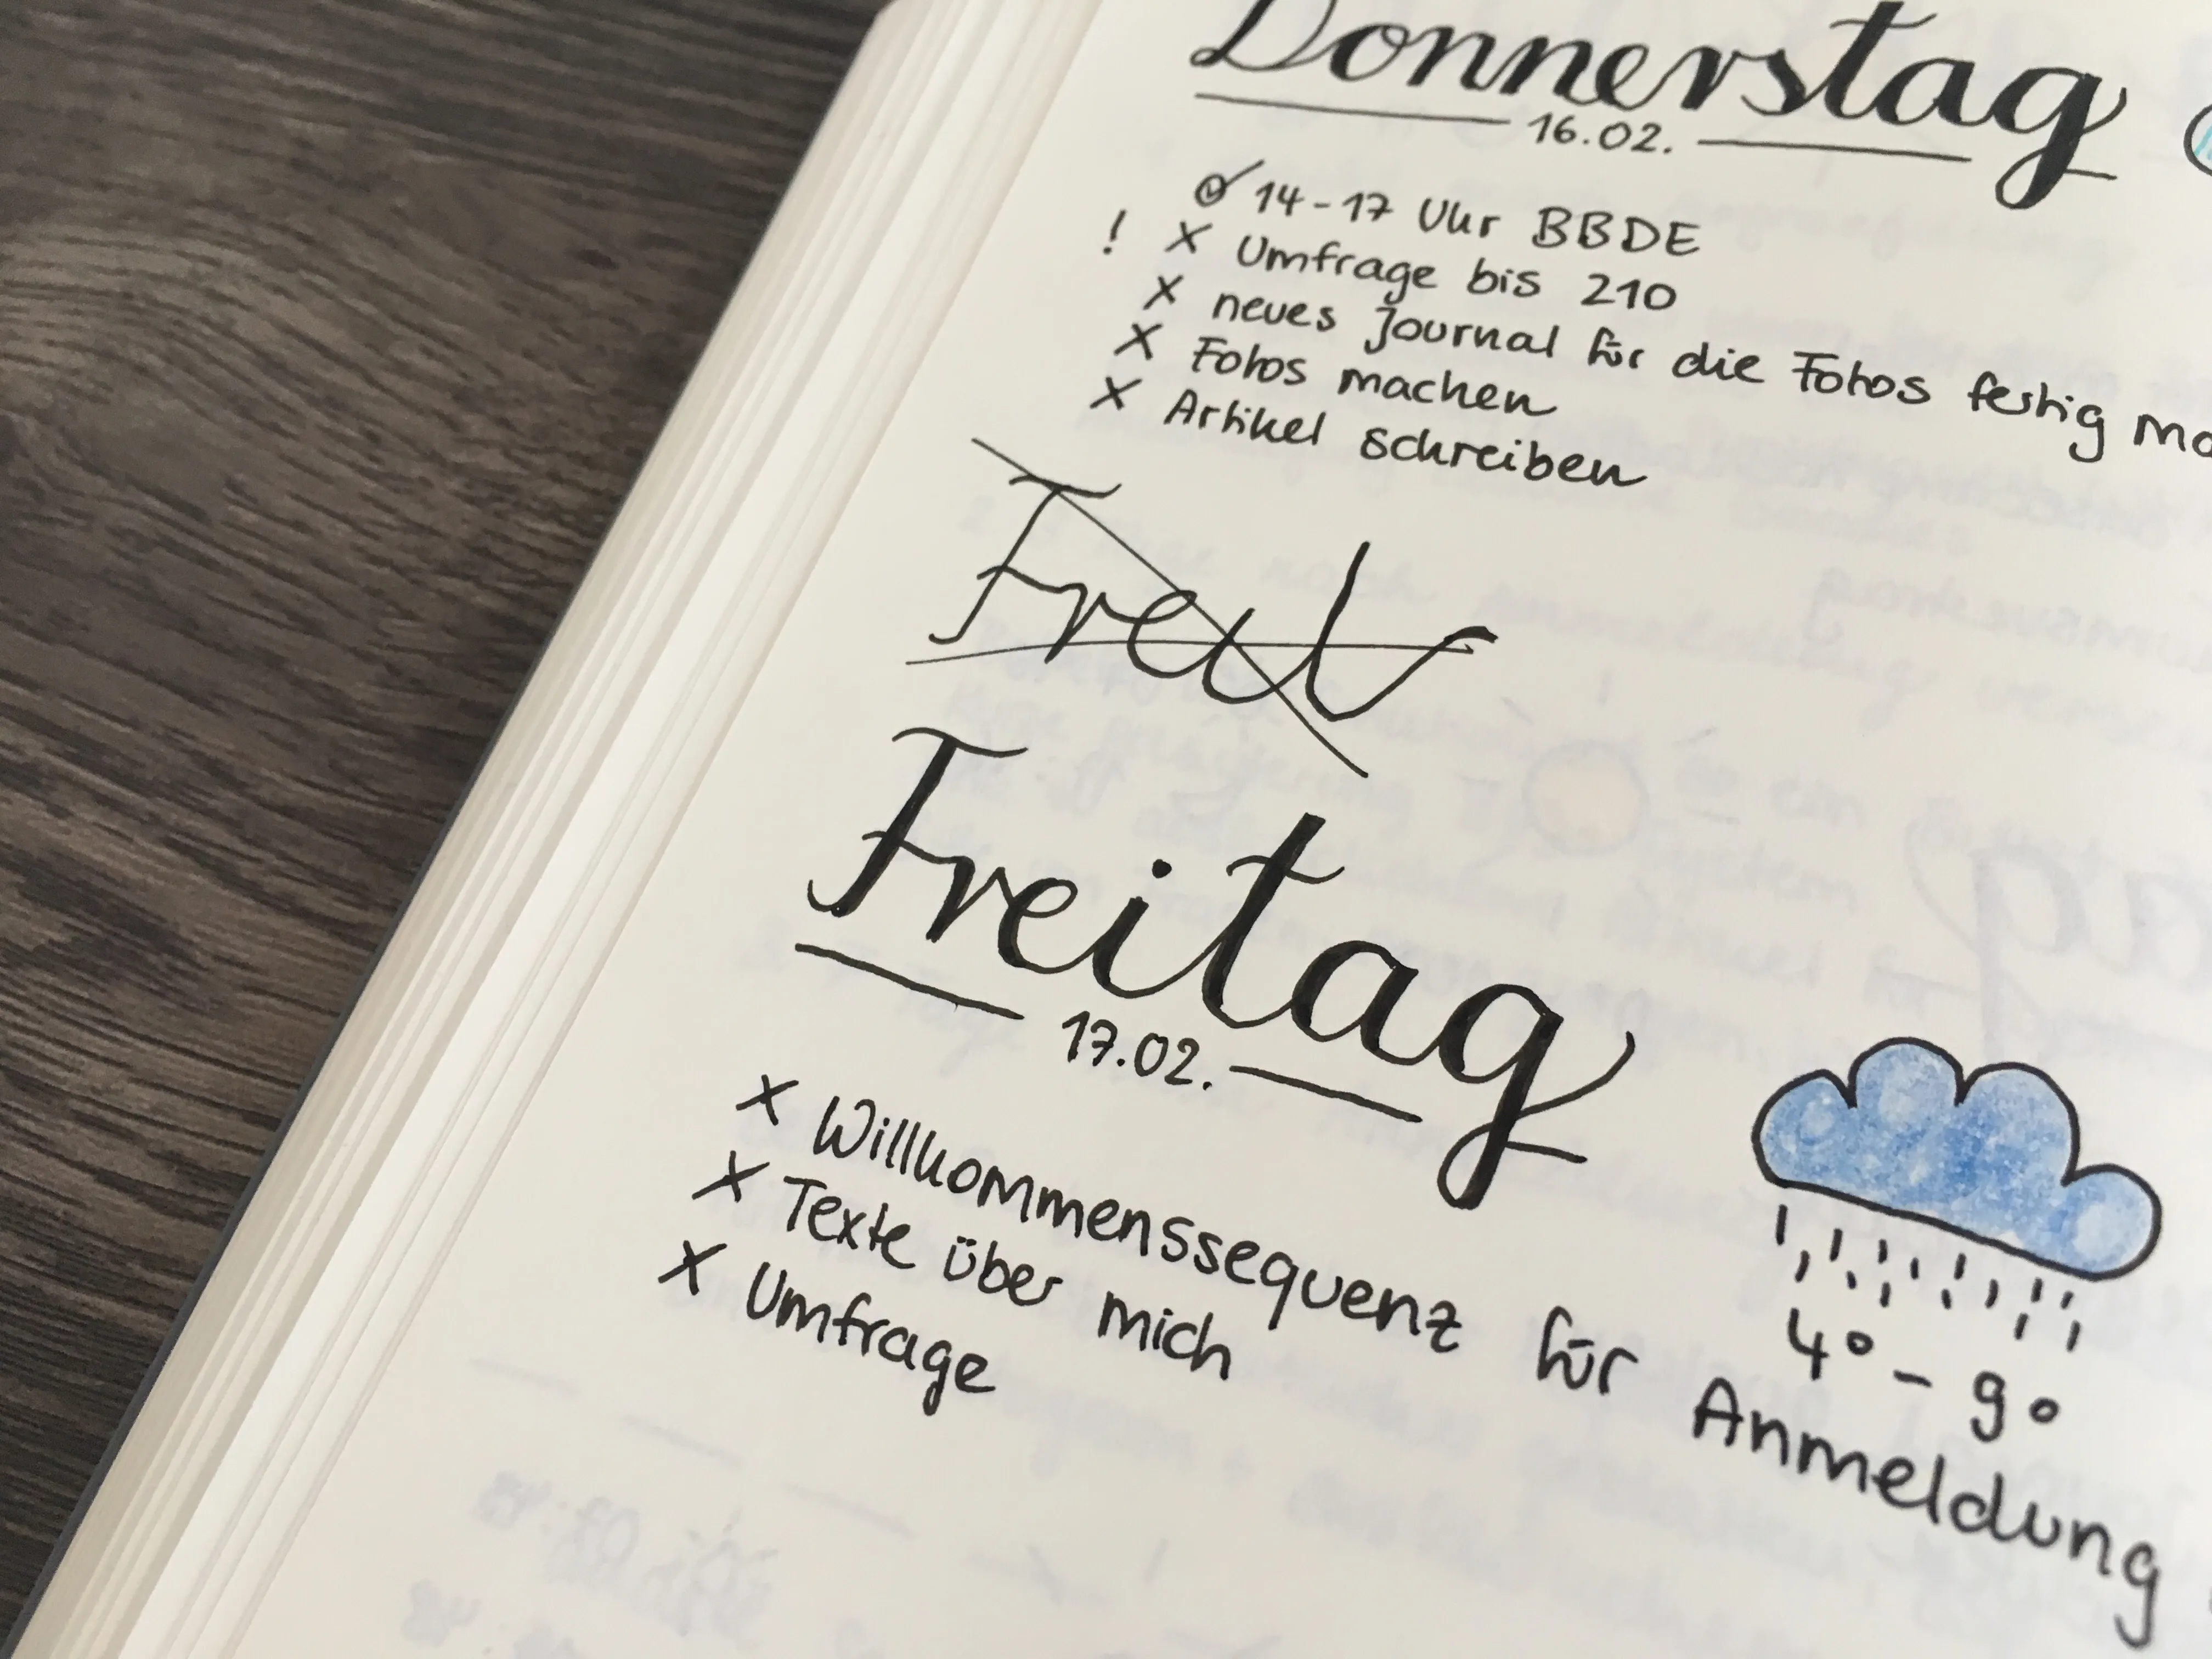 Donnerstag
16.02.
14-17 Uhr BBDE
! x Umfrage bis 210
x neues Journal für die Fotos fertig ma
x Fotos machen
x Artikel schreiben
Freitag
17.02.
x Willkommenssequenz für Anmeldung
x Texte über mich
x Umfrage
4° - 9°